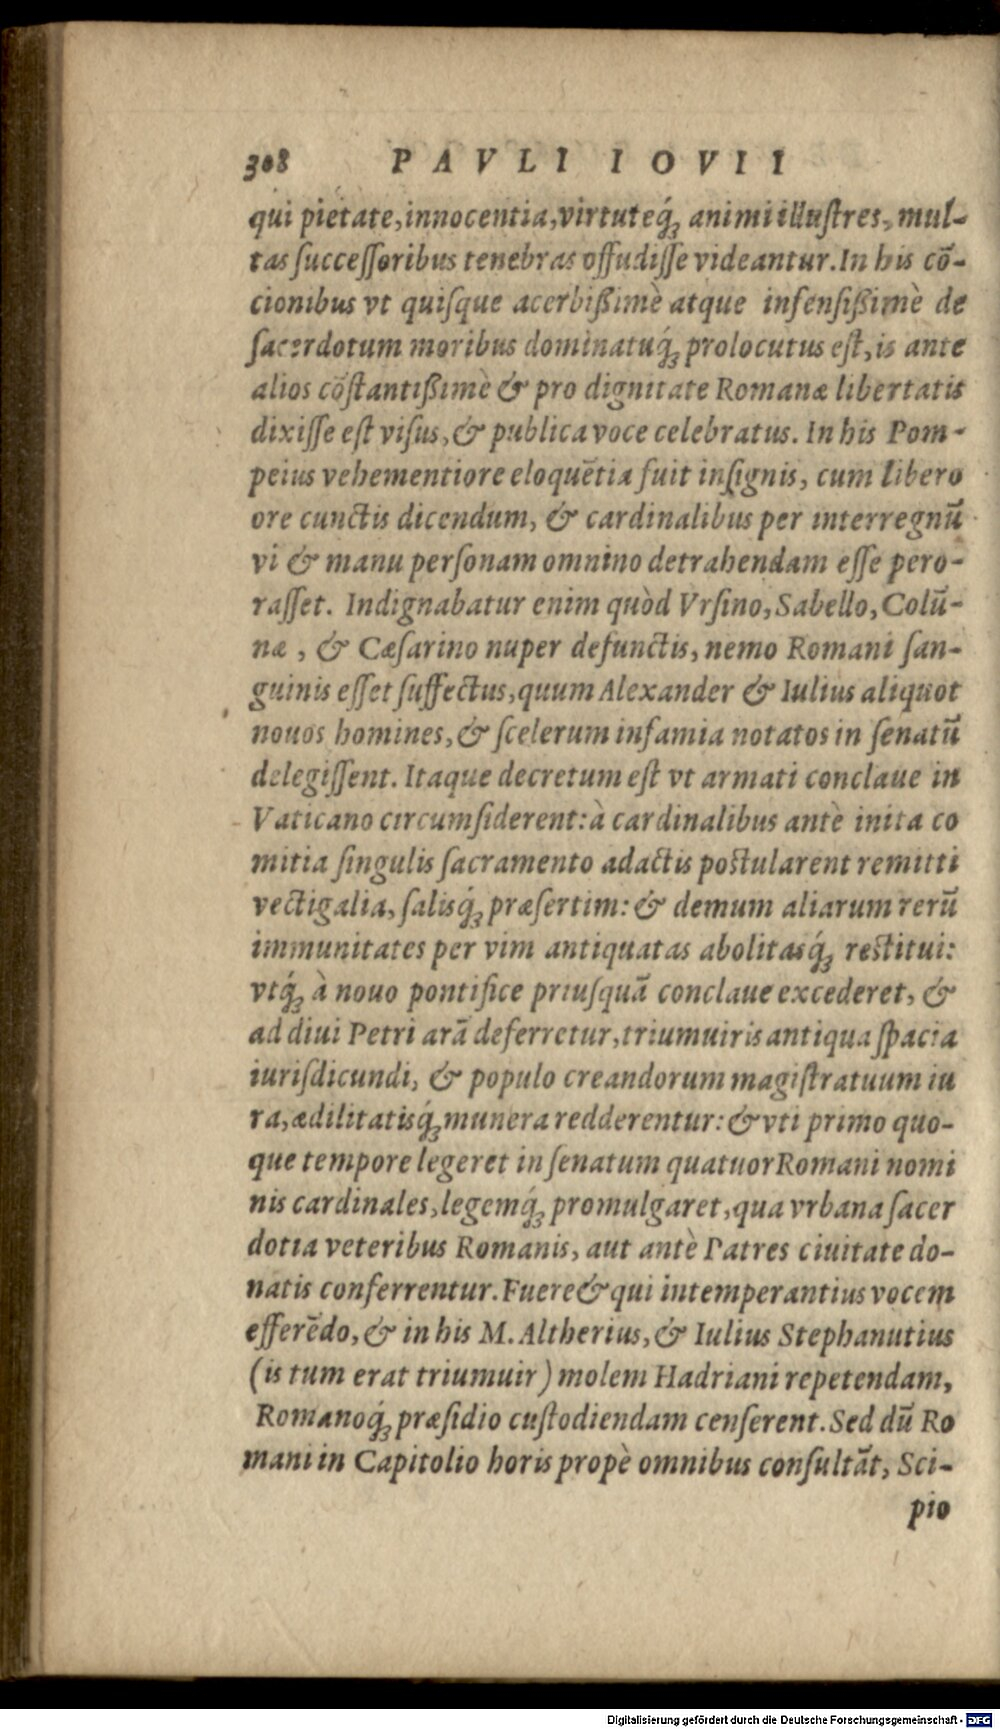 308 PAVLI IOVII
qui pietate, innocentia, virtuteq́ʒ animi illuſtres, mul-
tas ſucceſſoribus tenebras offudiſſe videantur. In his cõ-
cionibus vt quiſque acerbißimè atque infenſißimè de
ſacerdotum moribus dominatuq́ʒ prolocutus eſt, is ante
alios cõſtantißimè & pro dignitate Romanæ libertatis
dixiſſe eſt viſus, & publica voce celebratus. In his Pom-
peius vehementiore eloquẽtia fuit inſignis, cum libero
ore cunctis dicendum, & cardinalibus per interregnũ
vi & manu perſonam omnino detrahendam eſſe pero-
raſſet. Indignabatur enim quòd Vrſino, Sabello, Colũ-
næ, & Cæſarino nuper defunctis, nemo Romani ſan-
guinis eſſet ſuffectus, quum Alexander & Iulius aliquot
nouos homines, & ſcelerum infamia notatos in ſenatũ
delegiſſent. Itaque decretum eſt vt armati conclaue in
Vaticano circumſiderent: à cardinalibus antè inita co
mitia ſingulis ſacramento adactis poſtularent remitti
vectigalia, ſalisq́ʒ præſertim: & demum aliarum rerũ
immunitates per vim antiquatas abolitasq́ʒ reſtitui:
vtq́ʒ à nouo pontifice priuſquã conclaue excederet, &
ad diui Petri arã deferretur, triumuiris antiqua ſpacia
iuriſdicundi, & populo creandorum magiſtratuum iu
ra, ædilitatisq́ʒ munera redderentur: & vti primo quo-
que tempore legeret in ſenatum quatuor Romani nomi
nis cardinales, legemq́ʒ promulgaret, qua vrbana ſacer
dotia veteribus Romanis, aut antè Patres ciuitate do-
natis conferrentur. Fuere & qui intemperantius vocem
efferẽdo, & in his M. Altherius, & Iulius Stephanutius
(is tum erat triumuir) molem Hadriani repetendam,
Romanoq́ʒ præſidio cuſtodiendam cenſerent. Sed dũ Ro
mani in Capitolio horis propè omnibus conſultãt, Sci-
pio
Digitalisierung gefördert durch die Deutsche Forschungsgemeinschaft - DFG